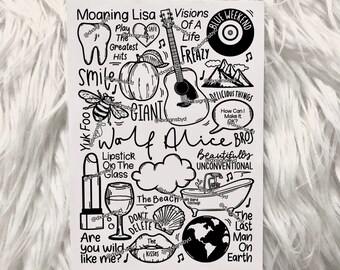 Moaning Lisa
Visions
Of A
Life
BLUE WEEKEND
Play
The
Greatest
Hits
SAFE
FREAZY
Smile
GIANT
DELICIOUS THINGS
How Can I
Make It
OK?
Yuk Foo
Wolf Alice
BROS
Lipstick
On The
Glass
Beautifully
UNCONVENTIONAL
The Beach
DON'T
DELETE
The
Kisses
Are
you wild
like me?
The
Last
Man
On
Earth